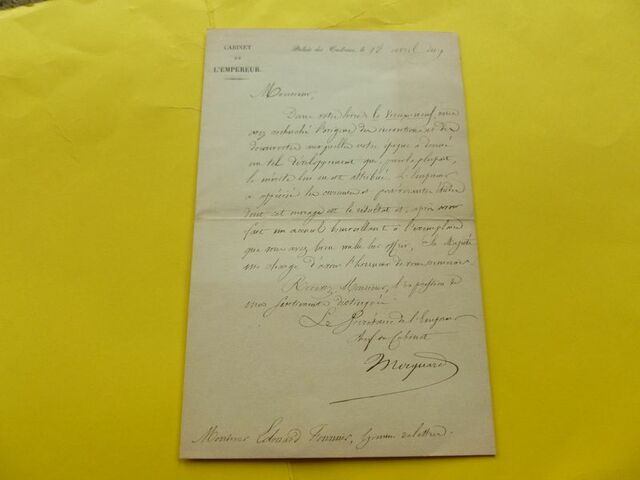 CABINET
DE
L'EMPEREUR.
Palais des Tuileries, le 18 avril 1859
Monsieur,
Dans votre livre le Vieux-neuf, vous
avez recherché l'origine des inventions et des
découvertes auxquelles notre époque a donné
un tel développement que, pour la plupart,
le mérite lui en est attribué. L'Empereur
a apprécié les curieuses et persévérantes études
dont cet ouvrage est le résultat et, après avoir
fait un accueil bienveillant à l'exemplaire
que vous avez bien voulu lui offrir, Sa Majesté
me charge d'avoir l'honneur de vous remercier.
Recevez, Monsieur, l'expression de
mes sentiments distingués.
Le Secrétaire de l'Empereur
Chef du Cabinet
Mocquard
Monsieur Edouard Fournier, homme de lettres.